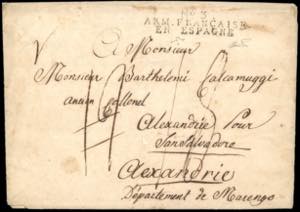 No 3
ARM. FRANÇAISE
EN ESPAGNE
A Monsieur
Monsieur Barthelemi Calcamuggi
ancien Collonel
Alexandrie Pour
San Salvadore
Alexandrie
Département de Marengo